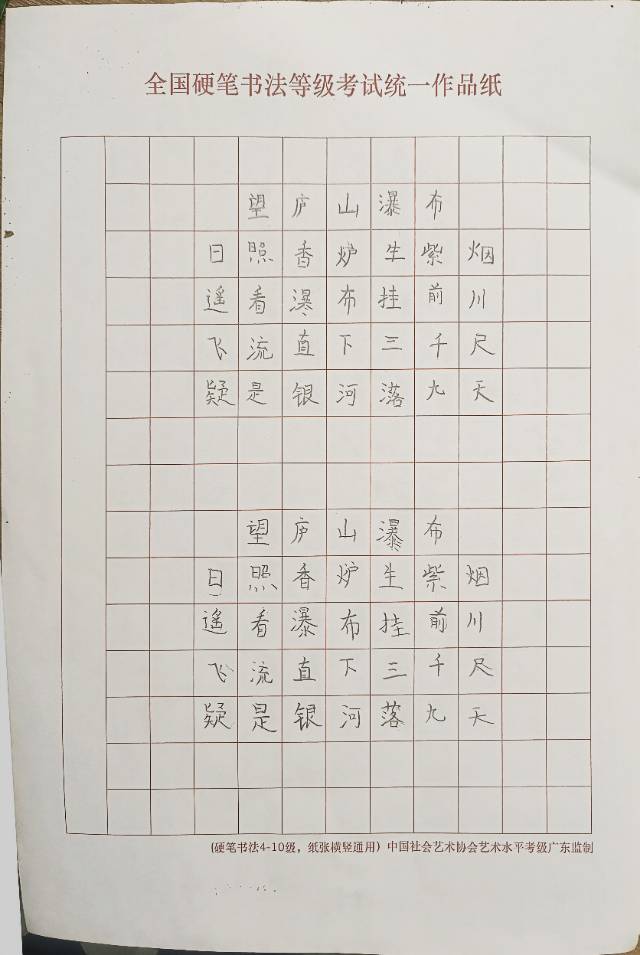 全国硬笔书法等级考试统一作品纸
望庐山瀑布
日照香炉生紫烟
遥看瀑布挂前川
飞流直下三千尺
疑是银河落九天
望庐山瀑布
日照香炉生紫烟
遥看瀑布挂前川
飞流直下三千尺
疑是银河落九天
(硬笔书法4-10级，纸张横竖通用) 中国社会艺术协会艺术水平考级广东监制